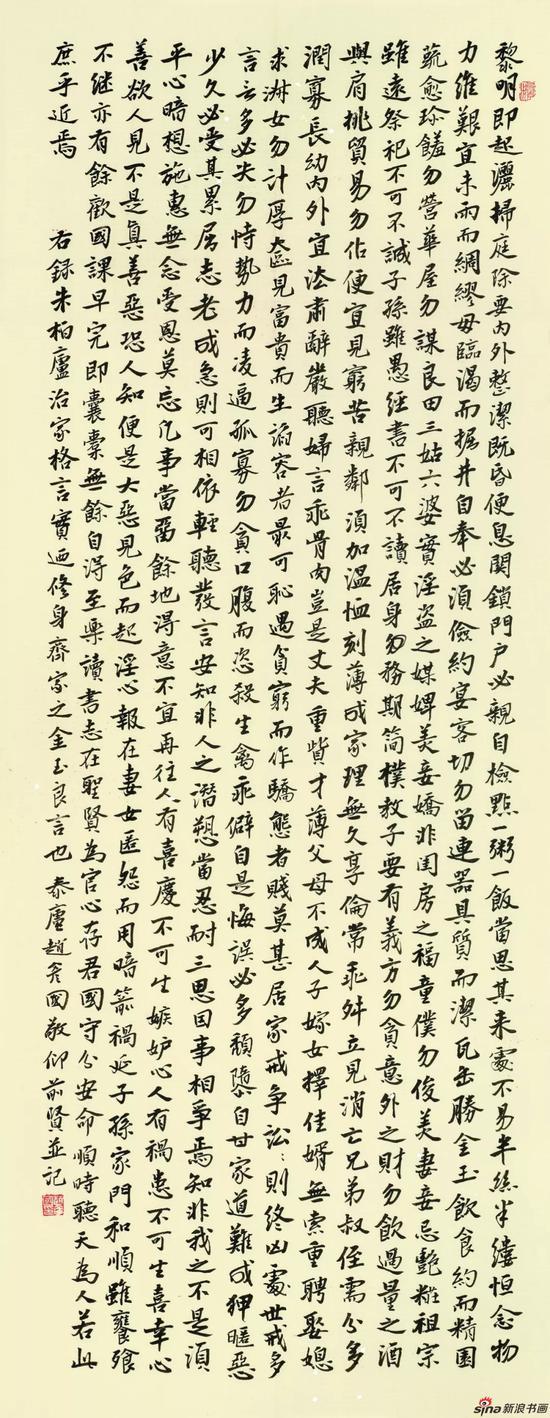 黎明即起灑掃庭除要内外整潔既昏便息関鎖門户必親自檢點一粥一飯當思其来處不易半絲半縷恒念物
力維艱宜未雨而綢繆毋臨渴而掘井自奉必須儉約宴客切勿留連器具質而潔瓦缶勝金玉飲食約而精園
蔬愈珍饈勿營華屋勿謀良田三姑六婆實淫盗之媒婢美妾嬌非閨房之福童僕勿俊美妻妾忌艷粧祖宗
雖遠祭祀不可不誠子孫雖愚經書不可不讀居身勿務期简樸教子要有義方勿貪意外之財勿飲過量之酒
與肩挑貿易勿佔便宜見窮苦親鄰須加溫恤刻薄成家理無久享倫常乖舛立見消亡兄弟叔侄需分多
潤寡長幼内外宜法肅辭嚴聽婦言乖骨肉豈是丈夫重貲才薄父母不成人子嫁女擇佳婿無索重聘娶媳
求淑女勿計厚奩見富貴而生諂容者最可恥遇貧窮而作驕態者賤莫甚居家戒争訟:則終凶處世戒多
言言多必失勿恃勢力而凌逼孤寡勿貪口腹而恣殺生禽乖僻自是悔誤必多頹隳自甘家道難成狎暱惡
少久必受其累屈志老成急則可相依輕聽發言安知非人之譖愬當忍耐三思因事相爭焉知非我之不是須
平心暗想施惠無念受恩莫忘凡事當留餘地得意不宜再往人有喜慶不可生嫉妒心人有禍患不可生喜幸心
善欲人見不是真善惡恐人知便是大惡見色而起淫心報在妻女匿怨而用暗箭禍延子孫家門和順雖饔飧
不继亦有餘歡國課早完即囊橐無餘自得至樂讀書志在聖賢為官心存君國守分安命順時聽天為人若此
庶乎近焉
右録朱柏廬治家格言實迺修身齊家之金玉良言也 泰廬趙國敬仰前賢並記
sina新浪书画